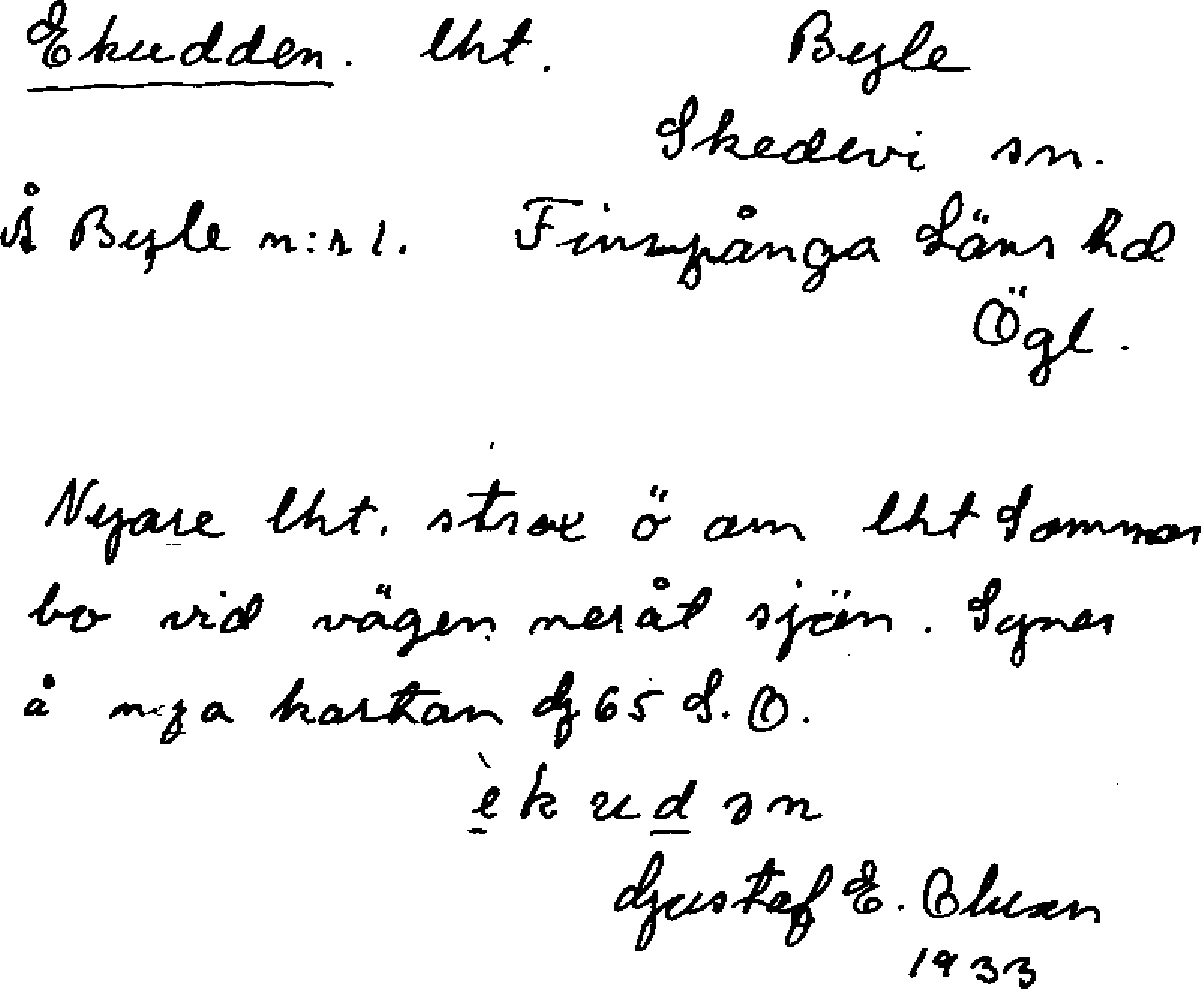 Ekudden. lht. Byle
Skedevi sn.
Å Byle n:r 1. Finspånga Läns hd
Ögl.
Nyare lht. strax ö om lht Sommar
bo vid vägen neråt sjön. Synes
å nya kartan G 65 S.O.
è̱ k u ḏ ə n
Gustaf E. Olsson
1933